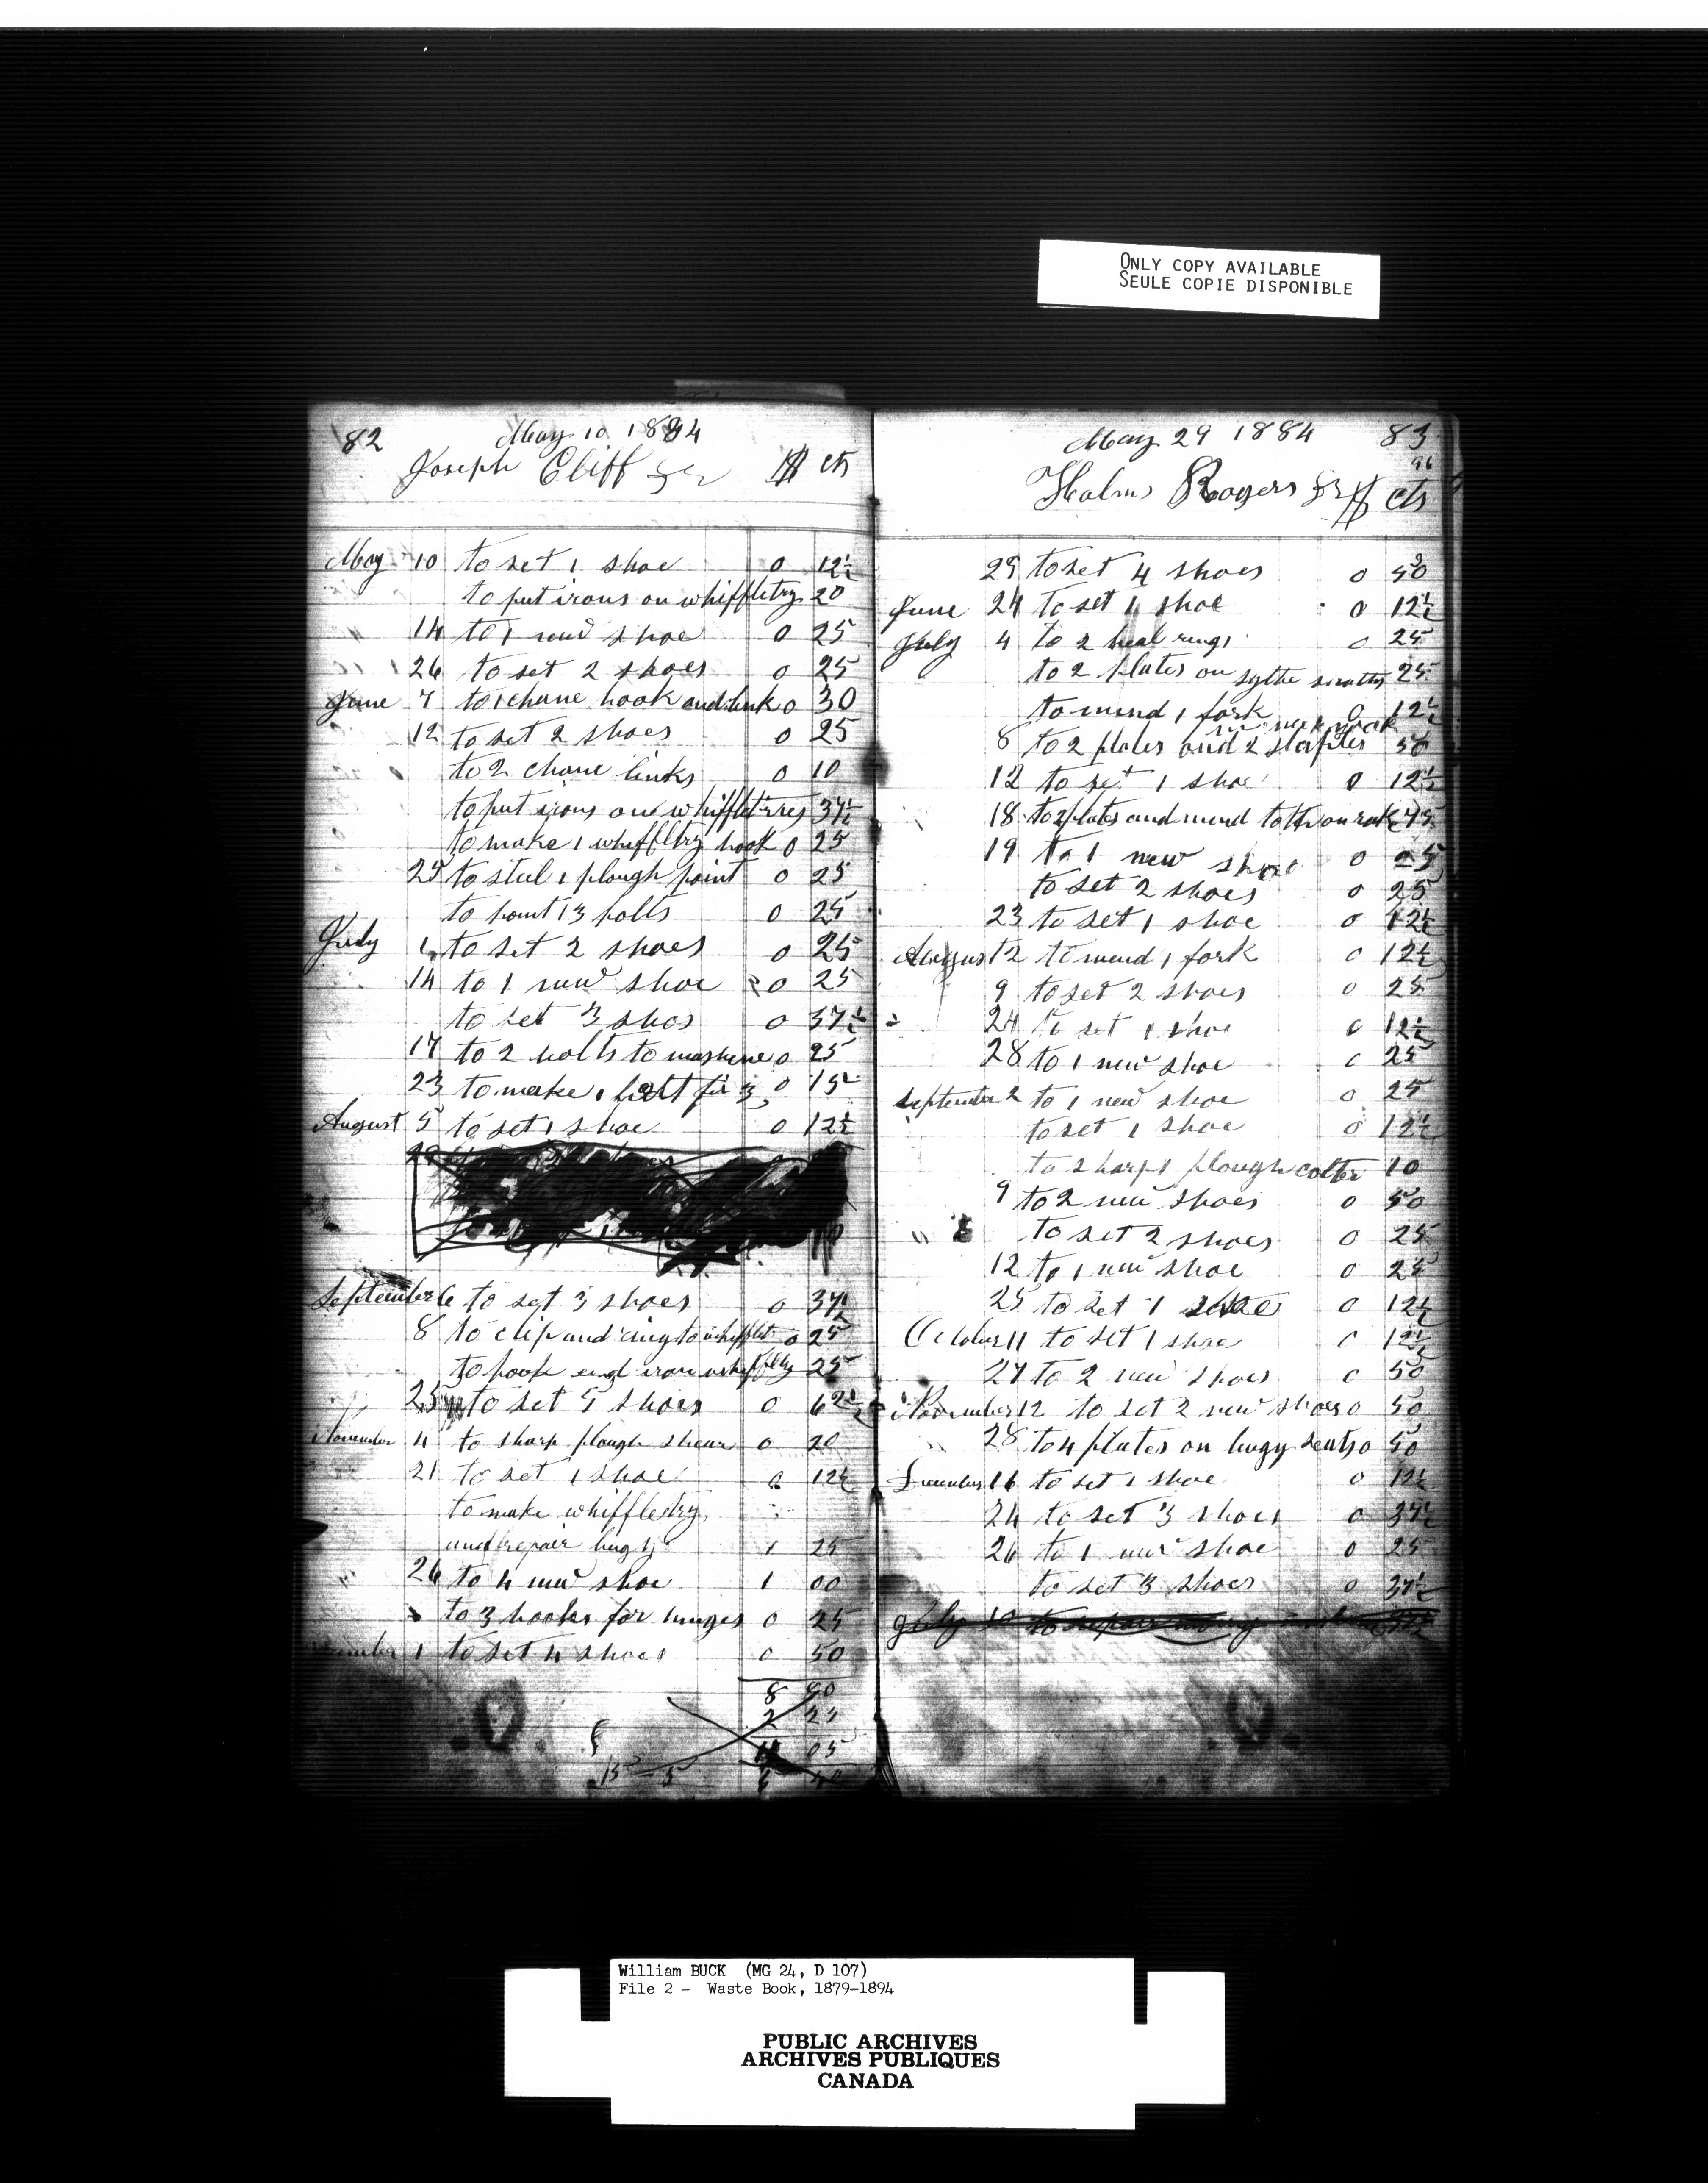 ONLY COPY AVAILABLE
SEULE COPIE DISPONIBLE
82
May 10 1884
Joseph Cliff $ cts
May 10 to set 1 shoe 0 12½
to put irons on whiffletry 20
14 to 1 new shoe 0 25
26 to set 2 shoes 0 25
June 7 to 1 chane hook and link 0 30
12 to set 2 shoes 0 25
to 2 chane links 0 10
to put irons on whiffletres 37½
to make 1 whiffltry hook 0 25
25 to steel 1 plough point 0 25
to point 13 bolts 0 25
July 1 to set 2 shoes 0 25
14 to 1 new shoe 0 25
to set 3 shos 0 37½
17 to 2 bolts to mashine 0 25
23 to make 1 bolt for 0 15
August 5 to set 1 shoe 0 12½
September 6 to set 3 shoes 0 37½
8 to clip and ring to whifflet 0 25
to hook end iron whiffltry 25
25 to set 5 shoes 0 62½
November 4 to sharp plough shear 0 20
21 to set 1 shoe 0 12½
to make whiffletry
and repair bugy 1 25
26 to 4 new shoe 1 00
to 3 hooks for hinges 0 25
1 to set 4 shoes 0 50
8 80
2 25
11 05
May 29 1884 83
96
Holms Rogers $ cts
29 to set 4 shoes 0 50
June 24 to set 1 shoe 0 12½
July 4 to 2 heal rings 0 25
to 2 plates on sythe snatts 25
to mend 1 fork 0 12½
neck yook
8 to 2 plates and 2 staples 50
12 to set 1 shoe 0 12½
18 to 2 plates and mend toth on rake 45
19 to 1 new shoe 0 25
to set 2 shoes 0 25
23 to set 1 shoe 0 12½
August 2 to mend 1 fork 0 12½
9 to set 2 shoes 0 25
24 to set 1 shoe 0 12½
28 to 1 new shoe 0 25
September 2 to 1 new shoe 0 25
to set 1 shoe 0 12½
to sharp 1 plough colter 10
9 to 2 new shoes 0 50
" to set 2 shoes 0 25
12 to 1 new shoe 0 25
25 to set 1 shoe 0 12½
October 11 to set 1 shoe 0 12½
27 to 2 new shoes 0 50
November 12 to set 2 new shoes 0 50
28 to 4 plates on bugy seats 0 50
December 16 to set 1 shoe 0 12½
24 to set 3 shoes 0 37½
26 to 1 new shoe 0 25
to set 3 shoes 0 37½
July 10 to repair
William BUCK (MG 24, D 107)
File 2 - Waste Book, 1879-1894
PUBLIC ARCHIVES
ARCHIVES PUBLIQUES
CANADA